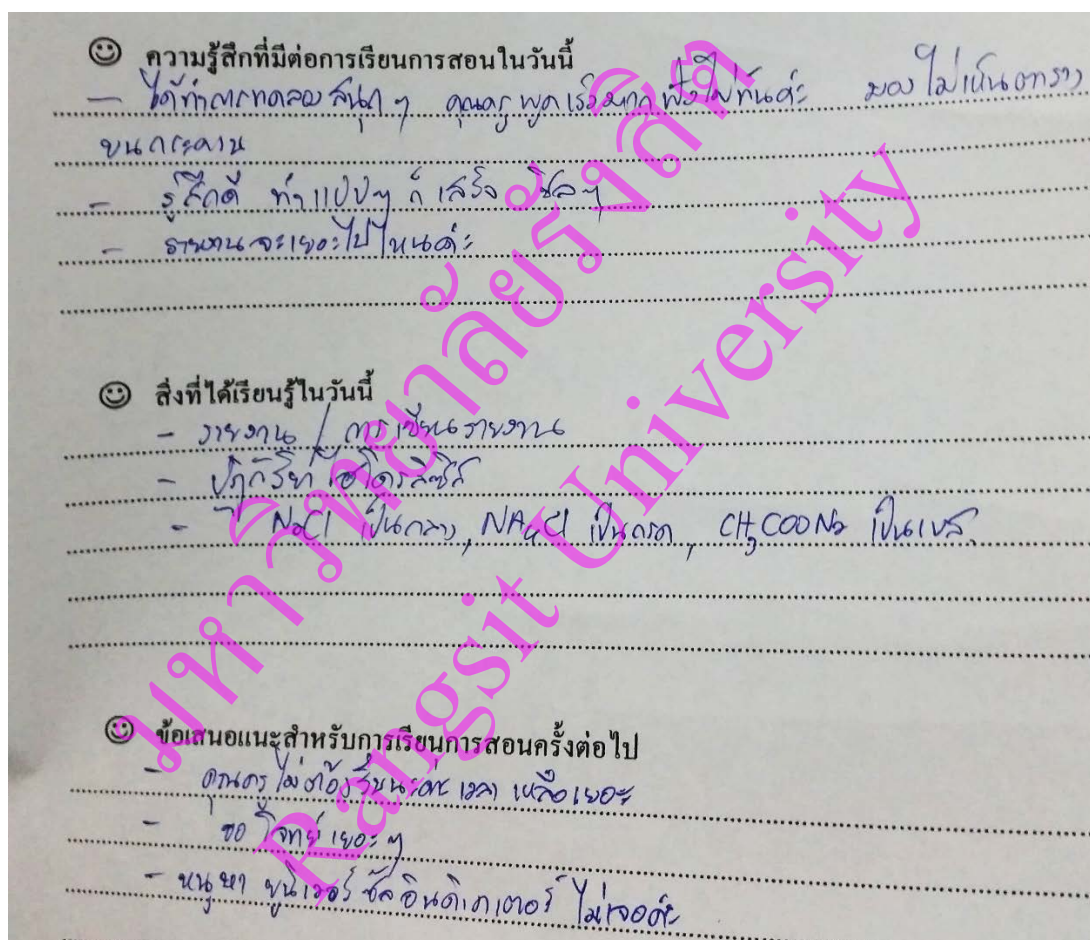 ☺ ความรู้สึกที่มีต่อการเรียนการสอนในวันนี้
- ได้ทำการทดลองสนุกๆ คุณครูพูดเร็วมากฟังไม่ทันค่ะ มองไม่เห็นตาราง
บนกระดาน
- รู้สึกดี ทำแป๊ปๆ ก็เสร็จ ชิลๆ
- รายงานจะเยอะไปไหนค่ะ
☺ สิ่งที่ได้เรียนรู้ในวันนี้
- รายงาน / การเขียนรายงาน
- ปฏิกิริยาไฮโดรลิซิส
- NaCl เป็นกลาง, NH4Cl เป็นกรด, CH3COONa เป็นเบส
☺ ข้อเสนอแนะสำหรับการเรียนการสอนครั้งต่อไป
- คุณครูไม่ต้องรีบนะคะ เวลาเหลือเยอะ
- ขอโจทย์เยอะๆ
- หนูหา ยูนิเวอร์ซัลอินดิเคเตอร์ ไม่เจอค่ะ
มหาวิทยาลัยรังสิต
Rangsit University